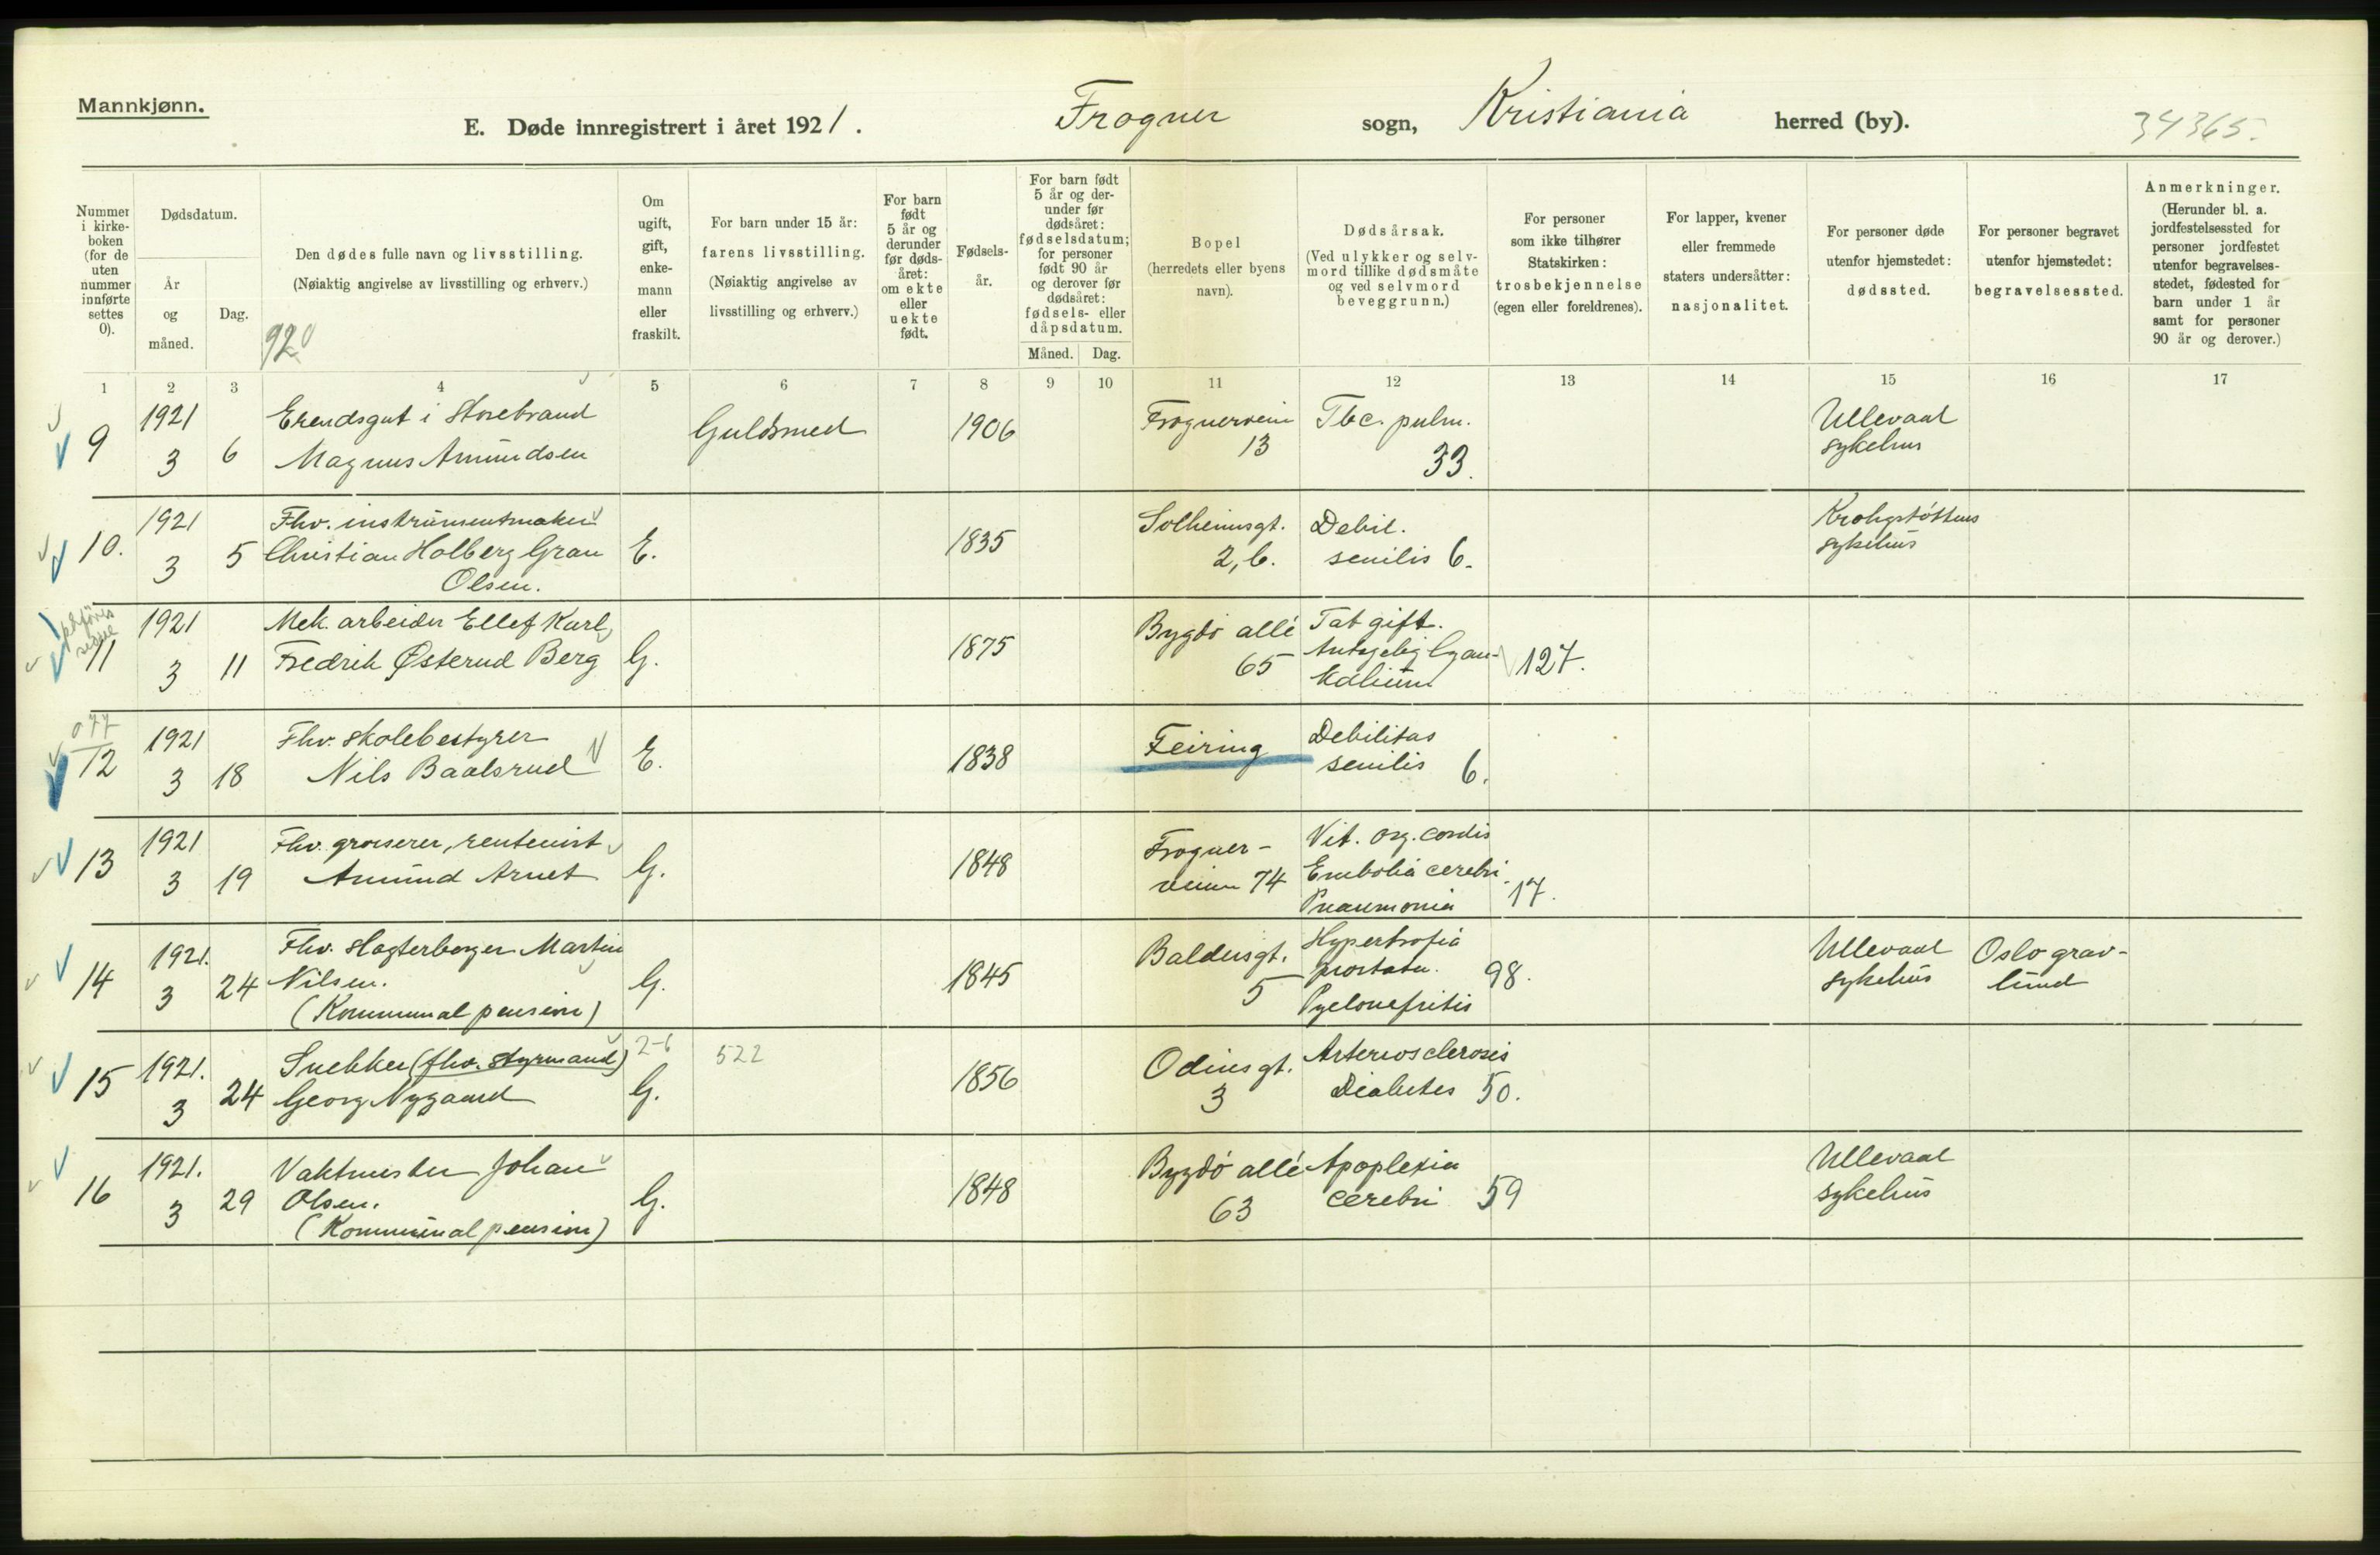 Mannkjønn.
E. Døde innregistrert i året 1921.
Frogner sogn, Kristiania herred (by).
34365.
Nummer i kirkeboken (for de uten nummer innførte settes 0).
Dødsdatum.
År og måned.
Dag.
Den dødes fulle navn og livsstilling.
(Nøiaktig angivelse av livsstilling og erhverv.)
920
Om ugift, gift, enkemann eller fraskilt.
For barn under 15 år:
farens livsstilling.
(Nøiaktig angivelse av livsstilling og erhverv.)
For barn født 5 år og derunder før dødsåret: om ekte eller uekte født.
Fødselsår.
For barn født 5 år og derunder før dødsåret: fødselsdatum; for personer født 90 år og derover før dødsåret: fødsels- eller dåpsdatum.
Måned. Dag.
Bopel
(herredets eller byens navn).
Dødsårsak.
(Ved ulykker og selvmord tillike dødsmåte og ved selvmord beveggrunn.)
For personer som ikke tilhører Statskirken:
trosbekjennelse
(egen eller foreldrenes).
For lapper, kvener eller fremmede staters undersåtter:
nasjonalitet.
For personer døde utenfor hjemstedet:
dødssted.
For personer begravet utenfor hjemstedet:
begravelsessted.
Anmerkninger.
(Herunder bl. a. jordfestelsessted for personer jordfestet utenfor begravelsesstedet, fødested for barn under 1 år samt for personer 90 år og derover.)
1 2 3 4 5 6 7 8 9 10 11 12 13 14 15 16 17
9 1921 3 6
Erendsgut i Storebrand
Magnus Amundsen
Guldsmed 1906
Frognerveien 13
Tbc. pulm. 33.
Ullevaal sykehus
10. 1921 3 5
Fhv. instrumentmaker
Christian Holberg Gran
Olsen.
E. 1835
Solheimsgt. 2, b.
Debil. senilis 6.
Krohgstøttens sykehus
11 1921 3 11
Mek. arbeider Ellef Karl
Fredrik Østerud Berg
G. 1875
Bygdö allé 65
Tat gift.
Antagelig Cyankalium 127.
077
12 1921 3 18
Fhv. skolebestyrer
Nils Baalsrud
E. 1838
Feiring
Debilitas senilis 6.
13 1921 3 19
Fhv. grosserer, rentenist
Amund Arnet
G. 1848
Frognerveien 74
Vit. org. cordis
Embolia cerebri.
Pneumonia 17.
14 1921. 3 24
Fhv. Slagterborger Martin
Nilsen.
(Kommunal pension)
G. 1845
Baldersgt. 5
Hypertrofia
prostata. 98.
Pyelonefritis
Ullevaal sykehus
Oslo gravlund
15 1921. 3 24
Snekker (fhv. styrmand)
Georg Nygaard
2-6 522
G. 1856
Odinsgt. 3
Arteriosclerosis
Diabetes 50.
16 1921. 3 29
Vaktmester Johan
Olsen.
(Kommunal pension)
G. 1848
Bygdö allé 63
Apoplexia
cerebri 59
Ullevaal sykehus